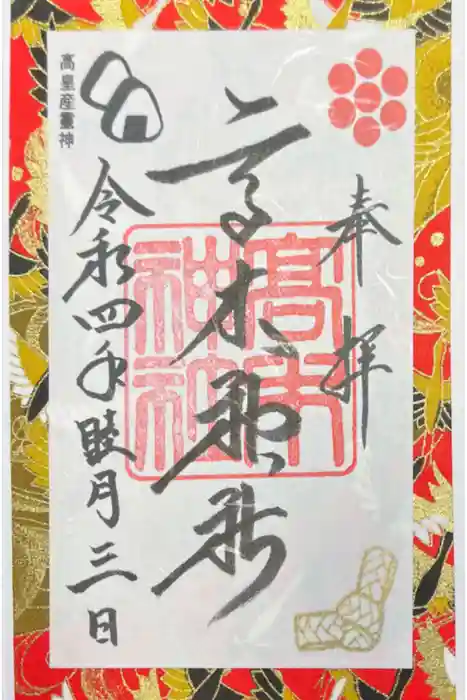 奉拝
高木神社
高木神社
令和四年睦月三日
高皇産霊神